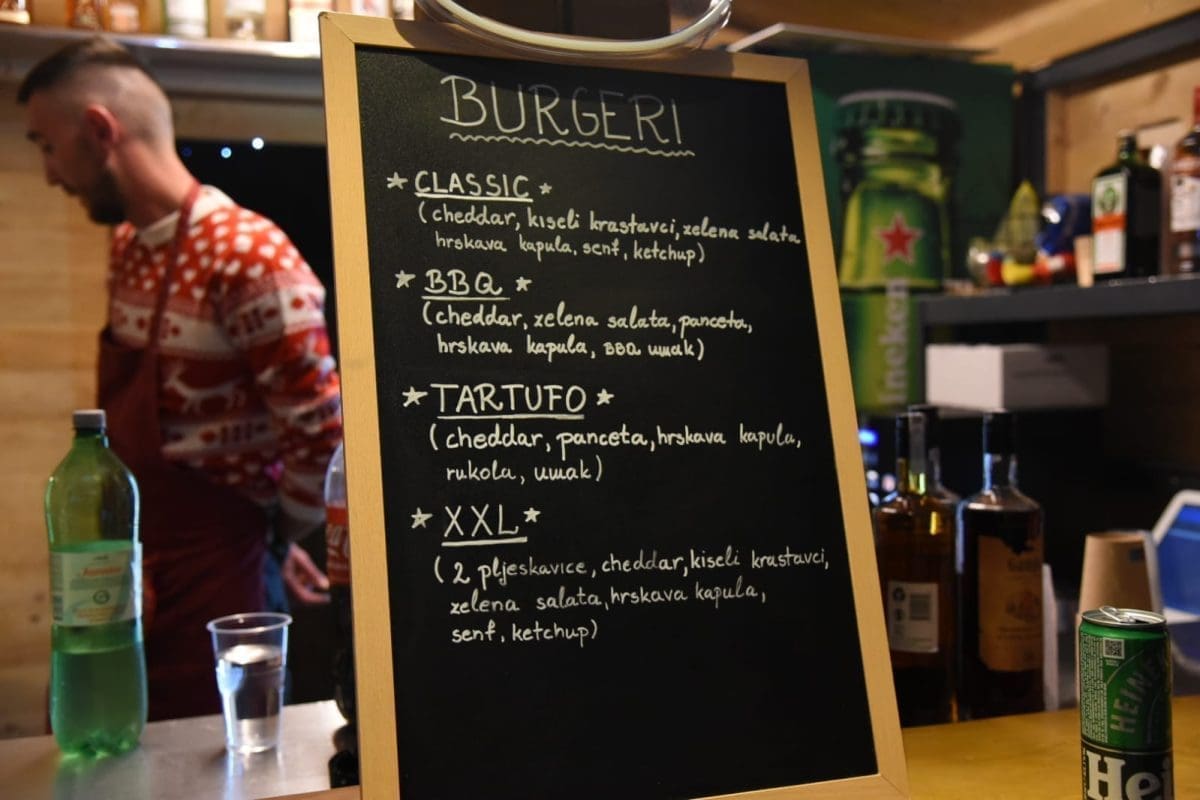 BURGERI
CLASSIC
(cheddar, kiseli krastavci, zelena salata
hrskava kapula, senf, ketchup)
BBQ
(cheddar, zelena salata, panceta,
hrskava kapula, BBQ umak)
TARTUFO
(cheddar, panceta, hrskava kapula,
rukola, umak)
XXL
(2 pljeskavice, cheddar, kiseli krastavci,
zelena salata, hrskava kapula,
senf, ketchup)
ineken
HEINE
Hei